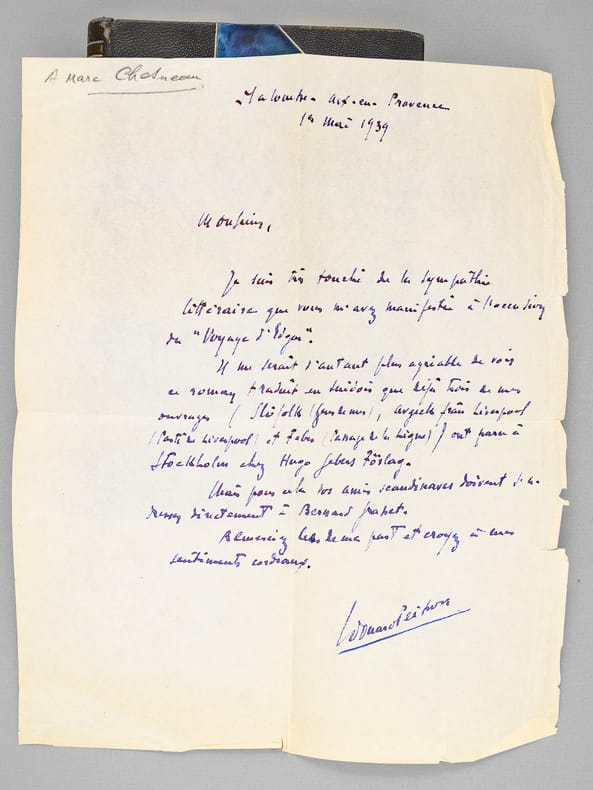 A Marc Chesneau
aix-en-Provence
1er Mai 1939
Monsieur,
Je suis très touché de la sympathie
littéraire que vous m'avez manifestée à l'occasion
du "Voyage d'Edgar".
Il me serait d'autant plus agréable de voir
ce roman traduit en suédois que déjà trois de mes
ouvrages ( (Gens de mer), från Liverpool
(Parti de Liverpool) et Feber (Passage de la ligne) ) ont paru à
Stockholm chez Hugo Gebers Förlag.
Mais pour cela vos amis scandinaves doivent s'a-
dresser directement à Bernard Grasset.
Remerciez les de ma part et croyez à mes
sentiments cordiaux.
Edouard Peisson